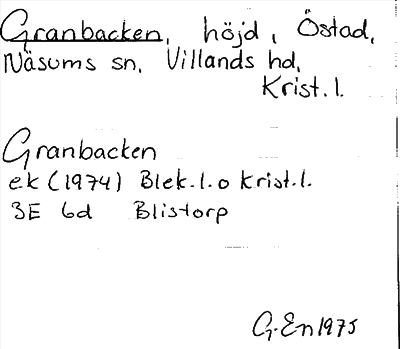 Granbacken, höjd, Östad,
Näsums sn, Villands hd,
Krist.l.
Granbacken
ek (1974) Blek.l. o Krist.l.
3E 6d Blistorp
G. En 1975